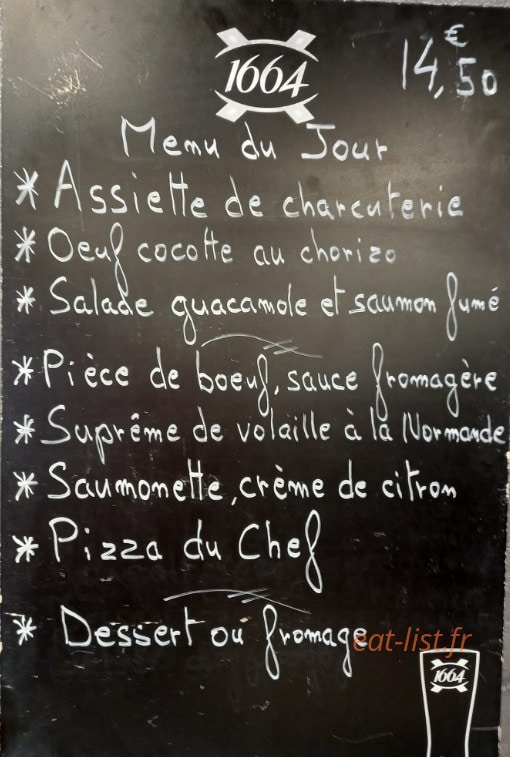 1664
14,50 €
Menu du Jour
* Assiette de charcuterie
* Oeuf cocotte au chorizo
* Salade guacamole et saumon fumé
* Pièce de boeuf, sauce fromagère
* Suprême de volaille à la Normande
* Saumonette, crème de citron
* Pizza du Chef
* Dessert ou fromage
eat-list.fr
1664